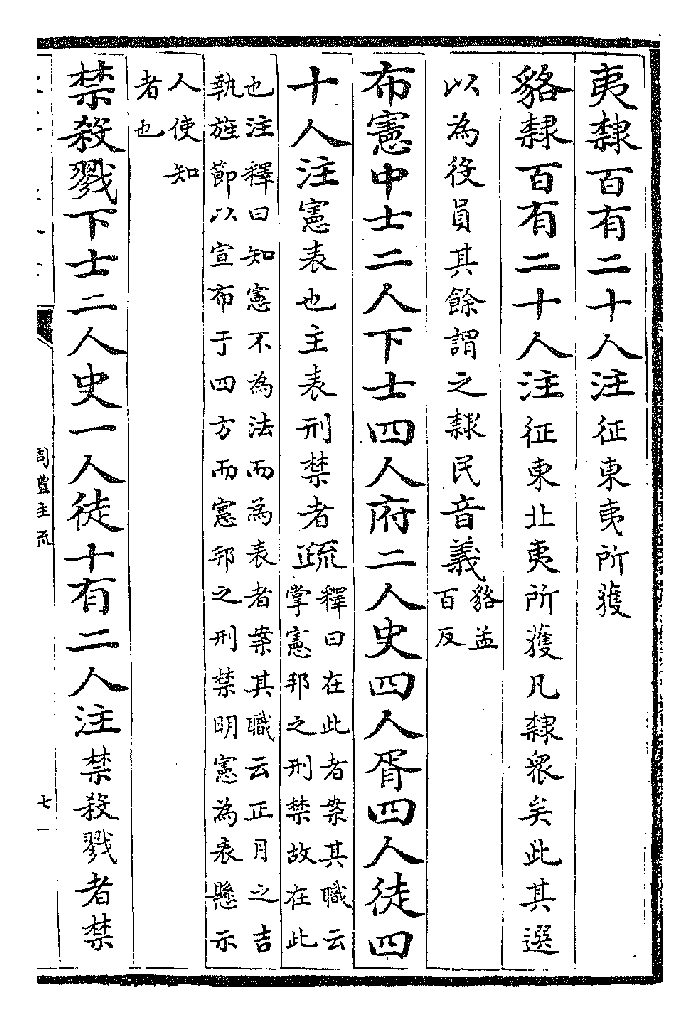 夷隸百有二十人注征東夷所獲
貉隸百有二十人注征東北夷所獲凡隸衆矣此其選
以為役員其餘謂之隸民音義貉孟
百反
布憲中士二人下士四人府二人史四人胥四人徒四
十人注憲表也主表刑禁者疏釋曰在此者案其職云
掌憲邦之刑禁故在此
也注釋曰知憲不為法而為表者案其職云正月之吉
執旌節以宣布于四方而憲邦之刑禁明憲為表懸示
人使知
者也
禁殺戮下士二人史一人徒十有二人注禁殺戮者禁
周禮注疏
七